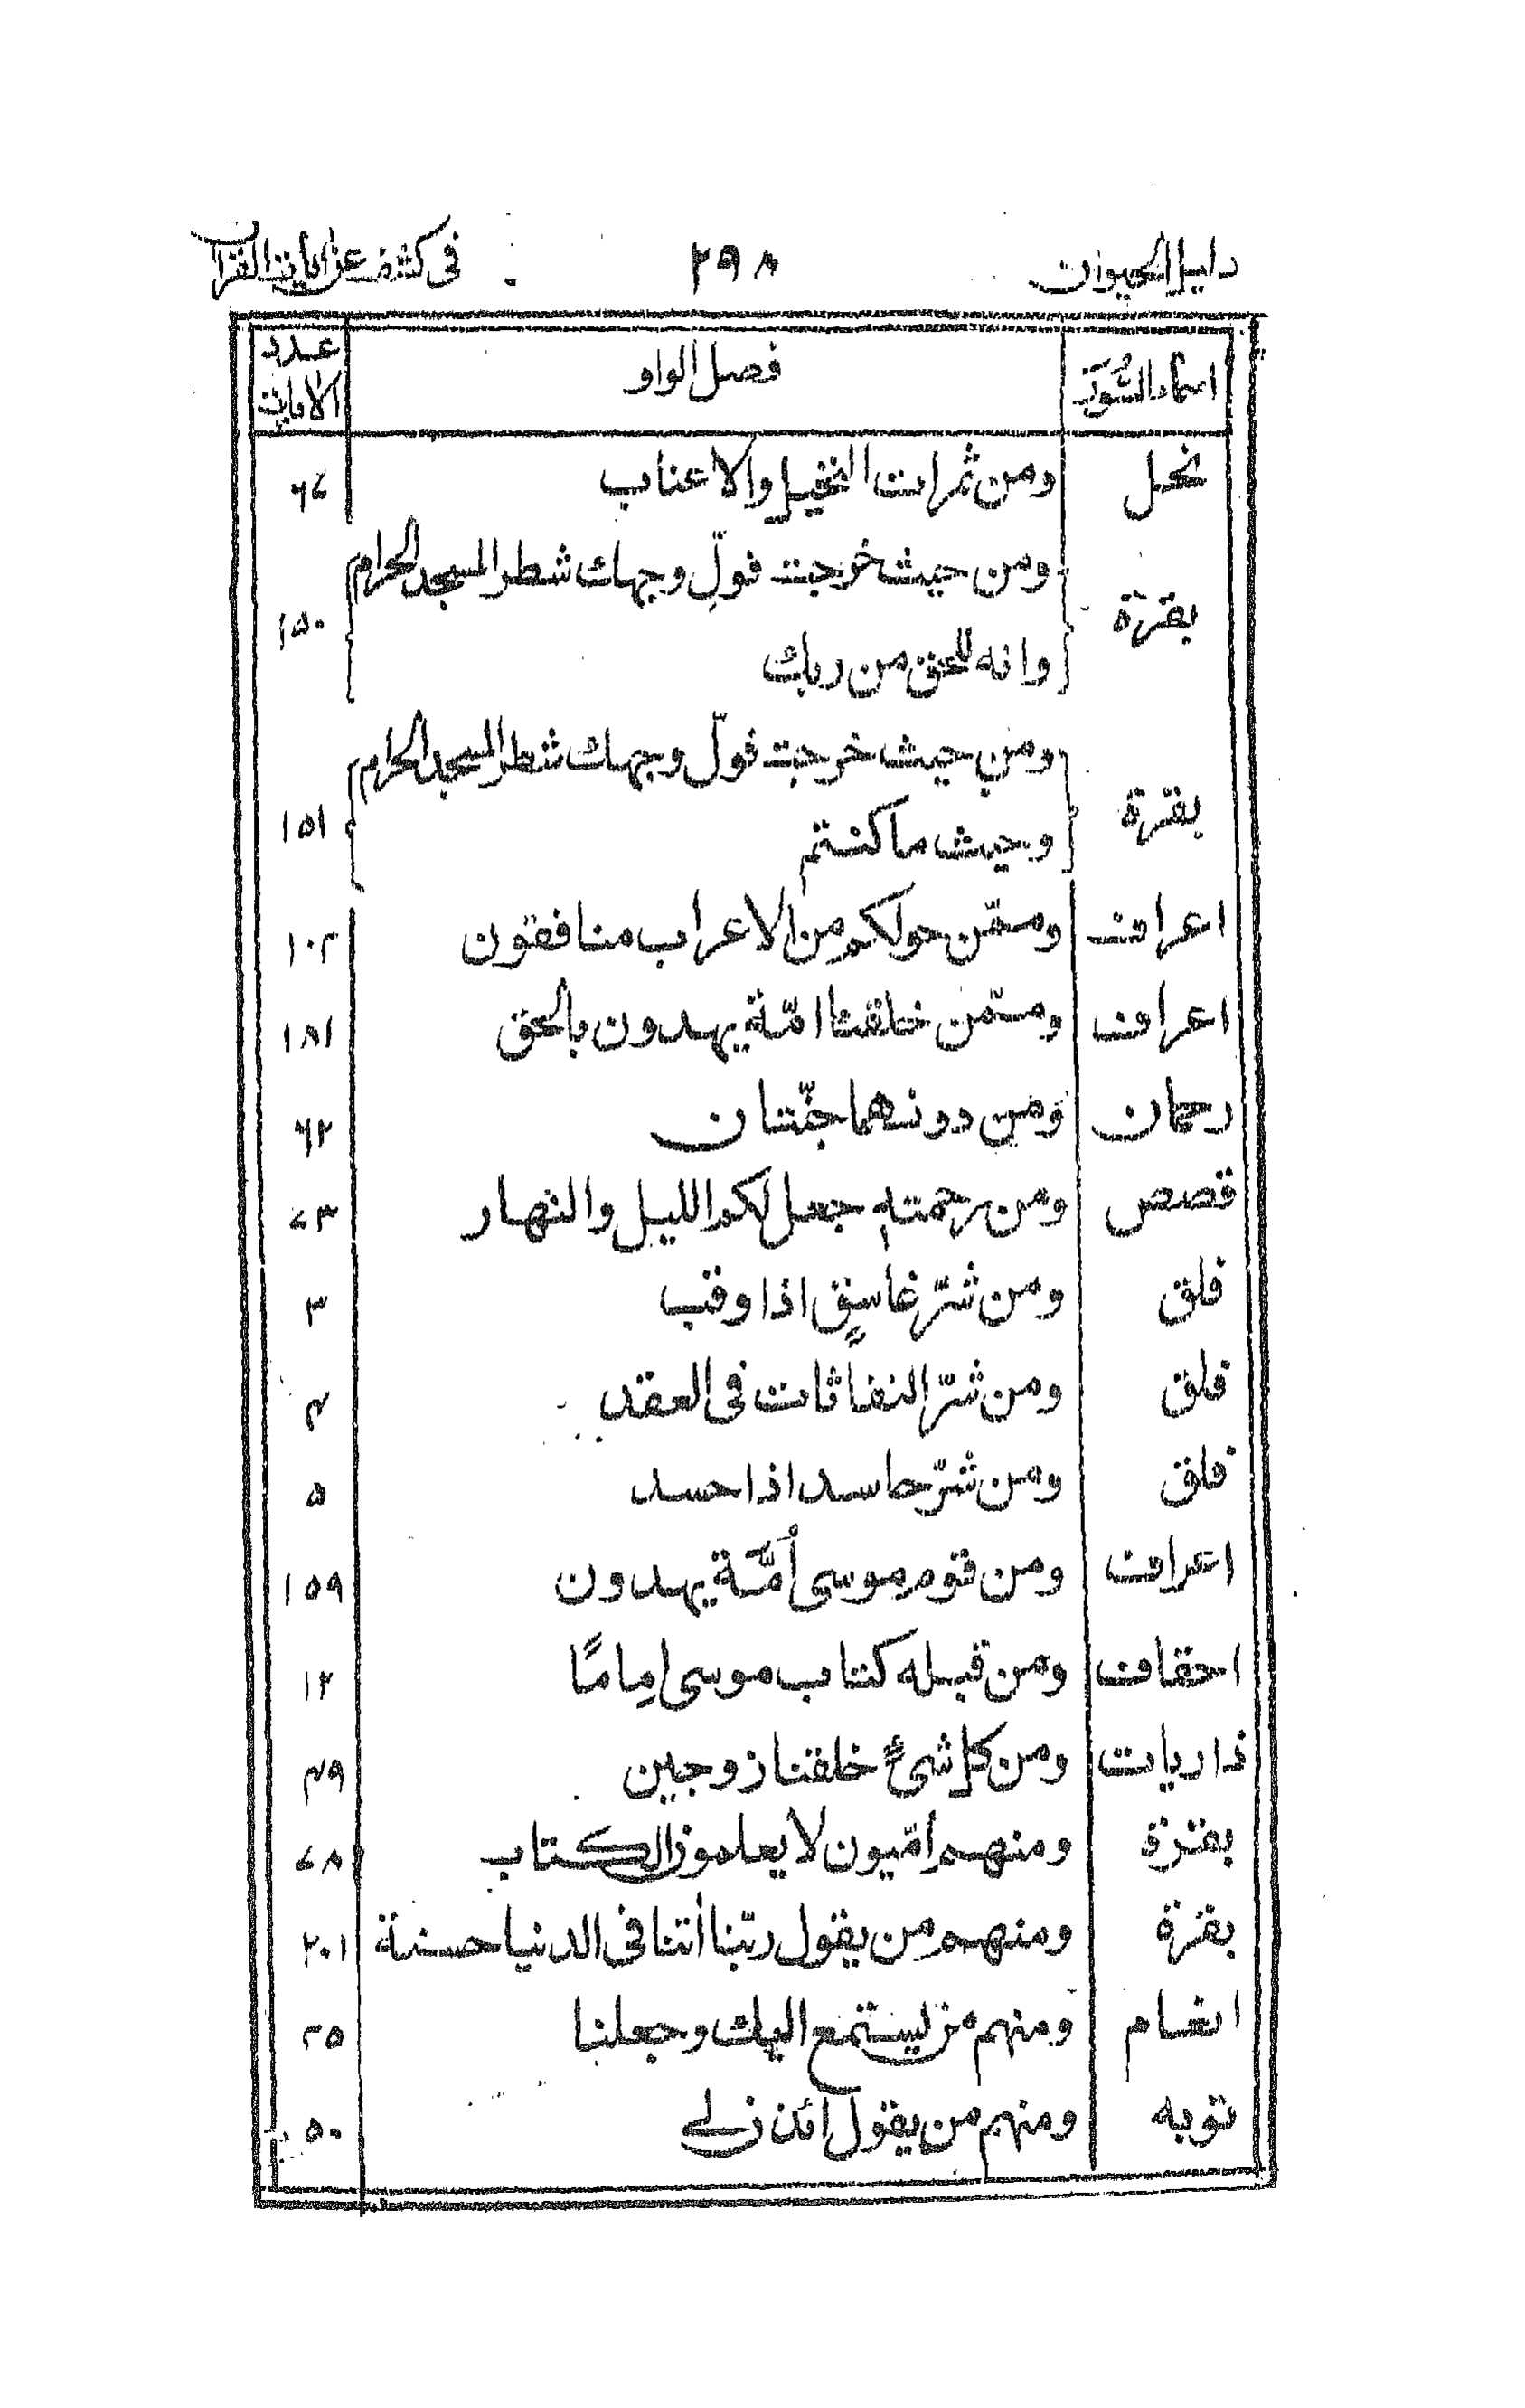 دليل الحيوان ٢٩٨ فى كشف عن ايات القران
اسماء السُّوَر فصل الواو عدد الايات
نحل ومن ثمرات النخيل والاعناب ٦٧
بقرة ومن حيث خرجت فولِّ وجهك شطر المسجد الحرام ١٥٠
وانه للحق من ربك
بقرة ومن حيث خرجت فولّ وجهك شطر المسجد الحرام ١٥١
وحيث ما كنتم
اعراف وممّن حولكم من الاعراب منافقون ١٠٢
اعراف وممّن خلقنا امّة يهدون بالحق ١٨١
رحمان ومن دونهما جنّتان ٦٢
قصص ومن رحمته جعل لكم الليل والنهار ٧٣
فلق ومن شرّ غاسقٍ اذا وقب ٣
فلق ومن شرّ النفاثات فى العقد ٤
فلق ومن شرّ حاسد اذا حسد ٥
اعراف ومن قوم موسى أمّة يهدون ١٥٩
احقاف ومن قبله كتاب موسى اماماً ١٢
ذاريات ومن كل شئ خلقنا زوجين ٤٩
بقرة ومنهم أمّيون لا يعلمون الكتاب ٧٨
بقرة ومنهم من يقول ربّنا أتنا فى الدنيا حسنة ٢٠١
انعام ومنهم من يستمع اليك وجعلنا ٢٥
توبه ومنهم من يقول ائذن لى ٥٠